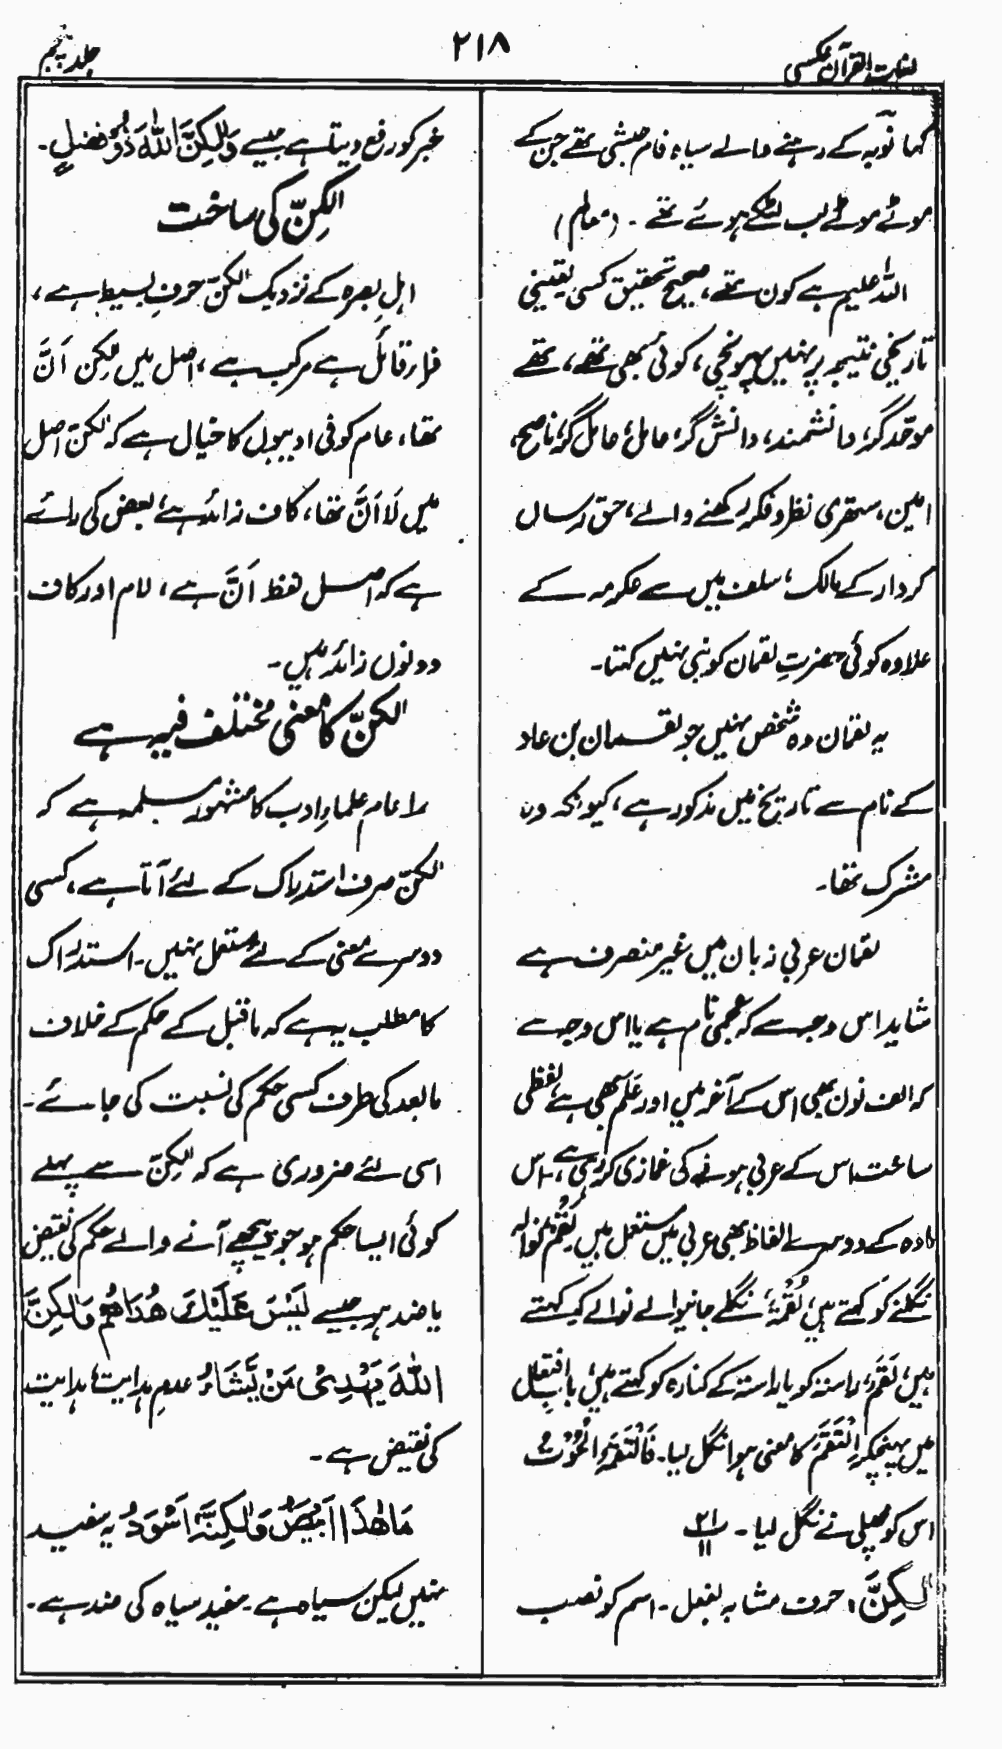 لغات القرآن عکسی
۲۱۸
جلد پنجم
کہا نوبہ کے رہنے والے سیاہ فام حبشی تھے جن کے
موٹے موٹے لب لٹکے ہوئے تھے ۔ (معالم)
اللہ علیم ہے کون تھے، صحیح تحقیق کسی یقینی
تاریخی نتیجہ پر نہیں پہونچی، کوئی بھی تھے، تھے
موحّد گر، دانشمند، دانش گر، عامل، عامل گر، ناصح،
امین، ستھری نظر و فکر رکھنے والے، حق رساں
کردار کے مالک، سلف میں سے عکرمہ کے
علاوہ کوئی حضرتِ لقمان کو نبی نہیں کہتا۔
یہ لقمان وہ شخص نہیں جو لقمان بن عاد
کے نام سے تاریخ میں مذکور ہے، کیونکہ وہ
مشرک تھا۔
لقمان عربی زبان میں غیر منصرف ہے
شاید اس وجہ سے کہ عجمی نام ہے یا اس وجہ سے
کہ الف نون بھی اس کے آخر میں اور عَلَم بھی ہے، لفظی
ساخت اس کے عربی ہونے کی غمازی کر رہی ہے، اس
مادہ کے دوسرے الفاظ بھی عربی میں مستعمل ہیں لَقْمٌ نوالہ
نگلنے کو کہتے ہیں، لُقْمَۃٌ، نگلے جانیوالے نوالے کو کہتے
ہیں، لَقَمَ، راستہ کو یا راستہ کے کنارہ کو کہتے ہیں، باب افتعال
میں پہنچکر اِلْتَقَمَ کا معنی ہوا نگل لیا۔ فَالْتَقَمَہُ الْحُوْتُ
اس کو مچھلی نے نگل لیا ۔ ۲۱/۱۱
لٰکِنَّ، حرف مشابہ بفعل ۔ اسم کو نصب
خبر کو رفع دیتا ہے جیسے وَلٰکِنَّ اللّٰہَ ذُوْ فَضْلٍ۔
لٰکِنَّ کی ساخت
اہلِ بصرہ کے نزدیک لٰکنّ حرفِ بسیط ہے،
فراء قائل ہے مرکب ہے، اصل میں لٰکِن اَنَّ
تھا، عام کوفی ادیبوں کا خیال ہے کہ لٰکنّ اصل
میں لَا اَنَّ تھا، کاف زائد ہے، بعض کی رائے
ہے کہ اصل لفظ اَنَّ ہے، لام اور کاف
دونوں زائد ہیں۔
لٰکنّ کا معنی مختلف فیہ ہے
۱۔ عام علماءِ ادب کا مشہور مسلمہ ہے کہ
لٰکنّ صرف استدراک کے لئے آتا ہے، کسی
دوسرے معنی کے لئے مستعمل نہیں۔ استدراک
کا مطلب یہ ہے کہ ماقبل کے حکم کے خلاف
مابعد کی طرف کسی حکم کی نسبت کی جائے۔
اسی لئے ضروری ہے کہ لٰکِنّ سے پہلے
کوئی ایسا حکم ہو جو پیچھے آنے والے حکم کی نقیض
یا ضد ہو جیسے لَیْسَ عَلَیْکَ ھُدَاھُمْ وَلٰکِنَّ
اللّٰہَ یَھْدِیْ مَنْ یَّشَاءُ عدمِ ہدایت، ہدایت
کی نقیض ہے۔
مَا ھٰذَا اَبْیَضُ وَلٰکِنَّہٗ اَسْوَدُ یہ سفید
نہیں لیکن سیاہ ہے۔ سفید سیاہ کی ضد ہے۔